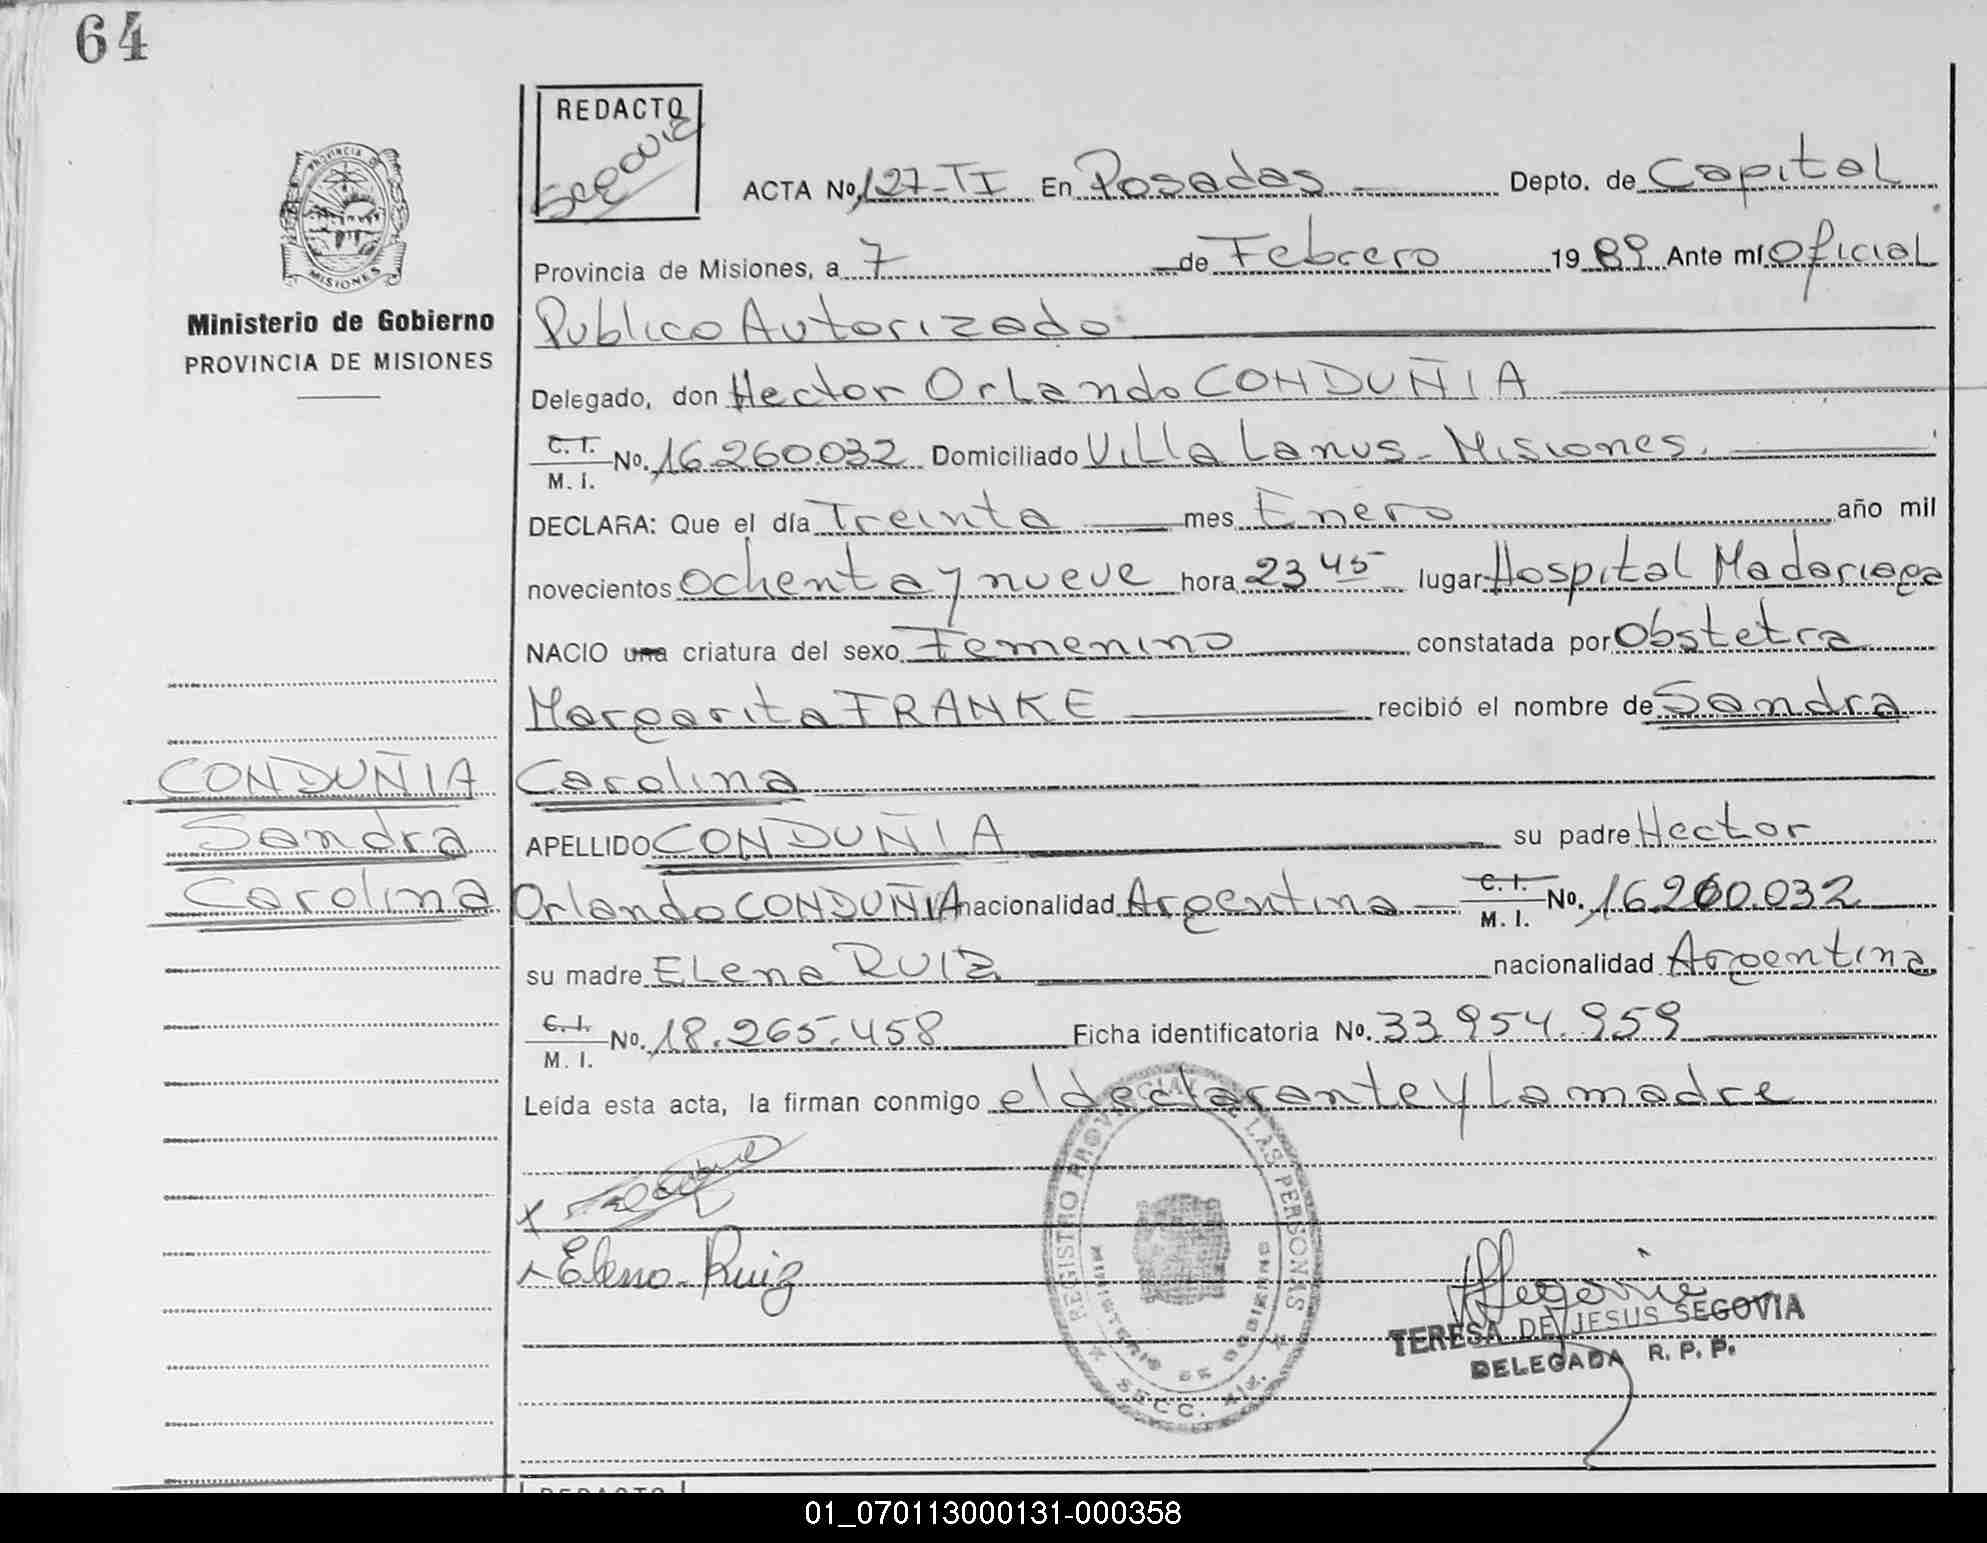 64
REDACTO
Segovia
ACTA No. 127-TI En Posadas Depto. de Capital
Provincia de Misiones, a 7 de Febrero 1989 Ante mí Oficial
Publico Autorizado
PROVINCIA DE
MISIONES
Ministerio de Gobierno
PROVINCIA DE MISIONES
Delegado, don Hector Orlando CONDUÑIA
C.I. M. I. No. 16.260.032 Domiciliado Villa Lanus - Misiones.
DECLARA: Que el día Treinta mes Enero año mil
novecientos ochenta y nueve hora 23 45 lugar Hospital Madariaga
NACIO una criatura del sexo Femenino constatada por Obstetra
Margarita FRANKE recibió el nombre de Sandra
Carolina
CONDUÑIA
Sandra
Carolina
APELLIDO CONDUÑIA su padre Hector
Orlando CONDUÑIA nacionalidad Argentina C. I. M. I. No. 16.260.032
su madre Elena RUIZ nacionalidad Argentina
C.I. M. I. No. 18.265.458 Ficha identificatoria No. 33.954.959
Leída esta acta, la firman conmigo el declarante y la madre
x
Elena Ruiz
REGISTRO PROVINCIAL DE LAS PERSONAS
MINISTERIO DE GOBIERNO
SECC.
Segovia
TERESA DE JESUS SEGOVIA
DELEGADA R. P. P.
REDACTO
01_070113000131-000358